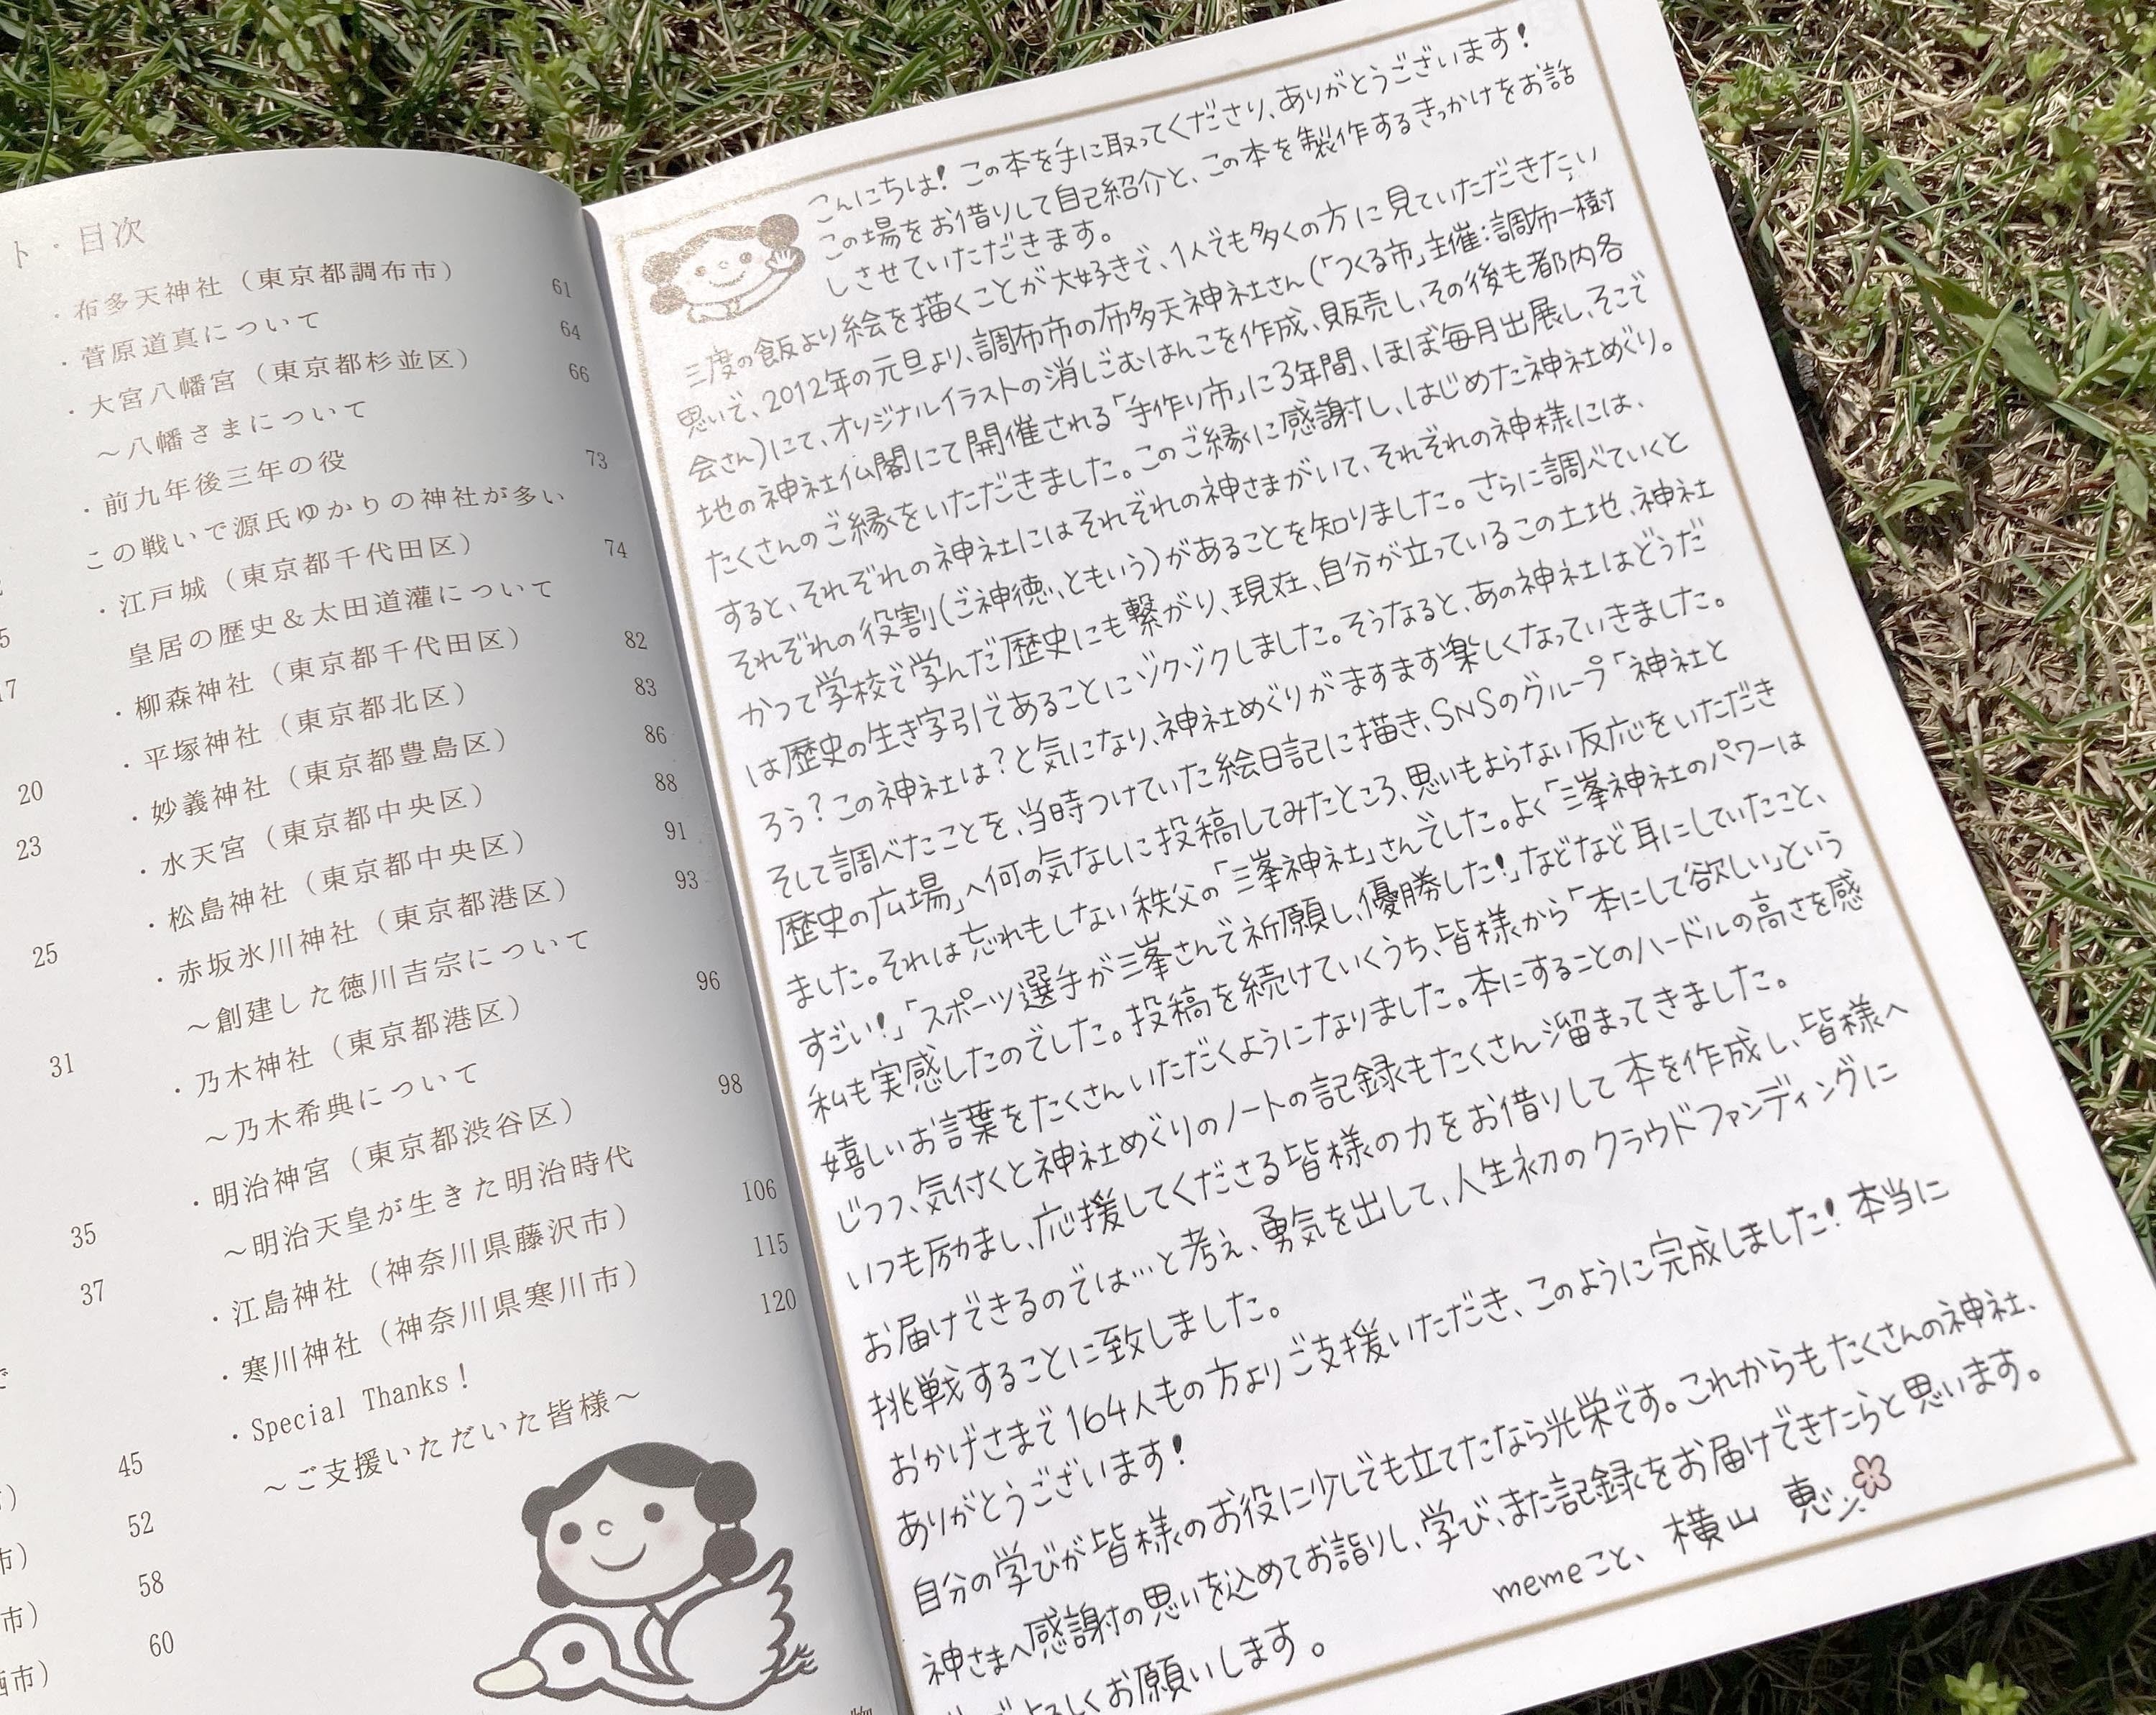 ト・目次
・布多天神社（東京都調布市） 61
・菅原道真について 64
・大宮八幡宮（東京都杉並区） 66
～八幡さまについて
・前九年後三年の役 73
この戦いで源氏ゆかりの神社が多い
・江戸城（東京都千代田区） 74
皇居の歴史＆太田道灌について
・柳森神社（東京都千代田区） 82
・平塚神社（東京都北区） 83
・妙義神社（東京都豊島区） 86
・水天宮（東京都中央区） 88
・松島神社（東京都中央区） 91
・赤坂氷川神社（東京都港区） 93
～創建した徳川吉宗について
・乃木神社（東京都港区） 96
～乃木希典について
・明治神宮（東京都渋谷区） 98
～明治天皇が生きた明治時代
・江島神社（神奈川県藤沢市） 106
・寒川神社（神奈川県寒川市） 115
・Special Thanks！ 120
～ご支援いただいた皆様～
5
17
20
23
25
31
35
37
45
52
市） 58
市） 60
市）
こんにちは！この本を手に取ってくださり、ありがとうございます！
この場をお借りして自己紹介と、この本を製作するきっかけをお話
しさせていただきます。
三度の飯より絵を描くことが大好きで、1人でも多くの方に見ていただきたい
思いで、2012年の元旦より、調布市の布多天神社さん（「つくる市」主催：調布一樹
会さん）にて、オリジナルイラストの消しごむはんこを作成、販売し、その後も都内各
地の神社仏閣にて開催される「手作り市」に3年間、ほぼ毎月出展し、そこで
たくさんのご縁をいただきました。このご縁に感謝し、はじめた神社めぐり。
すると、それぞれの神社にはそれぞれの神さまがいて、それぞれの神様には、
それぞれの役割（ご神徳、ともいう）があることを知りました。さらに調べていくと
かつて学校で学んだ歴史にも繋がり、現在、自分が立っているこの土地、神社
は歴史の生き字引であることにゾクゾクしました。そうなると、あの神社はどうだ
ろう？この神社は？と気になり、神社めぐりがますます楽しくなっていきました。
そして調べたことを、当時つけていた絵日記に描き、SNSのグループ「神社と
歴史の広場」へ何の気なしに投稿してみたところ、思いもよらない反応をいただき
ました。それは忘れもしない秩父の「三峯神社」さんでした。よく「三峯神社のパワーは
すごい！」「スポーツ選手が三峯さんで祈願し、優勝した！」などなど耳にしていたこと、
私も実感したのでした。投稿を続けていくうち、皆様から「本にして欲しい」という
嬉しいお言葉をたくさんいただくようになりました。本にすることのハードルの高さを感
じつつ、気付くと神社めぐりのノートの記録もたくさん溜まってきました。
いつも励まし、応援してくださる皆様の力をお借りして本を作成し、皆様へ
お届けできるのでは…と考え、勇気を出して、人生初のクラウドファンディングに
挑戦することに致しました。
おかげさまで164人もの方よりご支援いただき、このように完成しました！本当に
ありがとうございます！
自分の学びが皆様のお役に少しでも立てたなら光栄です。これからもたくさんの神社、
神さまへ感謝の思いを込めてお詣りし、学び、また記録をお届けできたらと思います。
よろしくお願いします。
memeこと、横山 恵